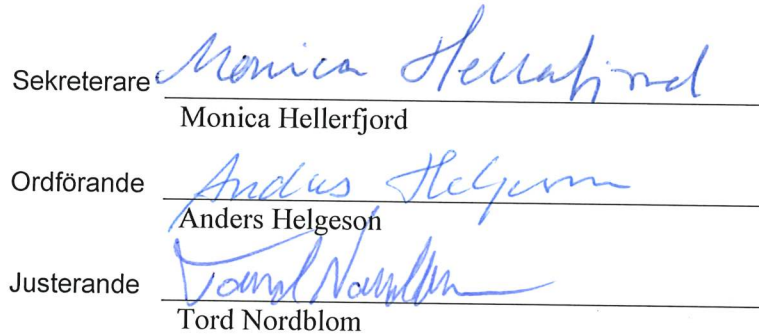 Sekreterare Monica Hellerfjord
Monica Hellerfjord
Ordförande Anders Helgeson
Anders Helgeson
Justerande Tord Nordblom
Tord Nordblom